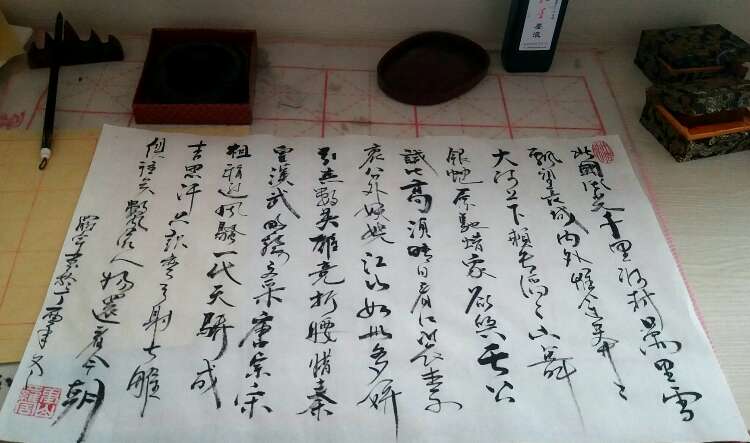 北國風光千里冰封萬里雪
飄望長城內外惟余莽〻
大河上下頓失滔〻山舞
銀蛇原馳蜡象欲與天公
試比高須晴日看紅裝素
裹分外妖嬈江山如此多嬌
引無數英雄競折腰惜秦
皇漢武略輸文采唐宗宋
祖稍遜風騷一代天驕成
吉思汗只識彎弓射大雕
俱往矣數風流人物還看今朝
墨液